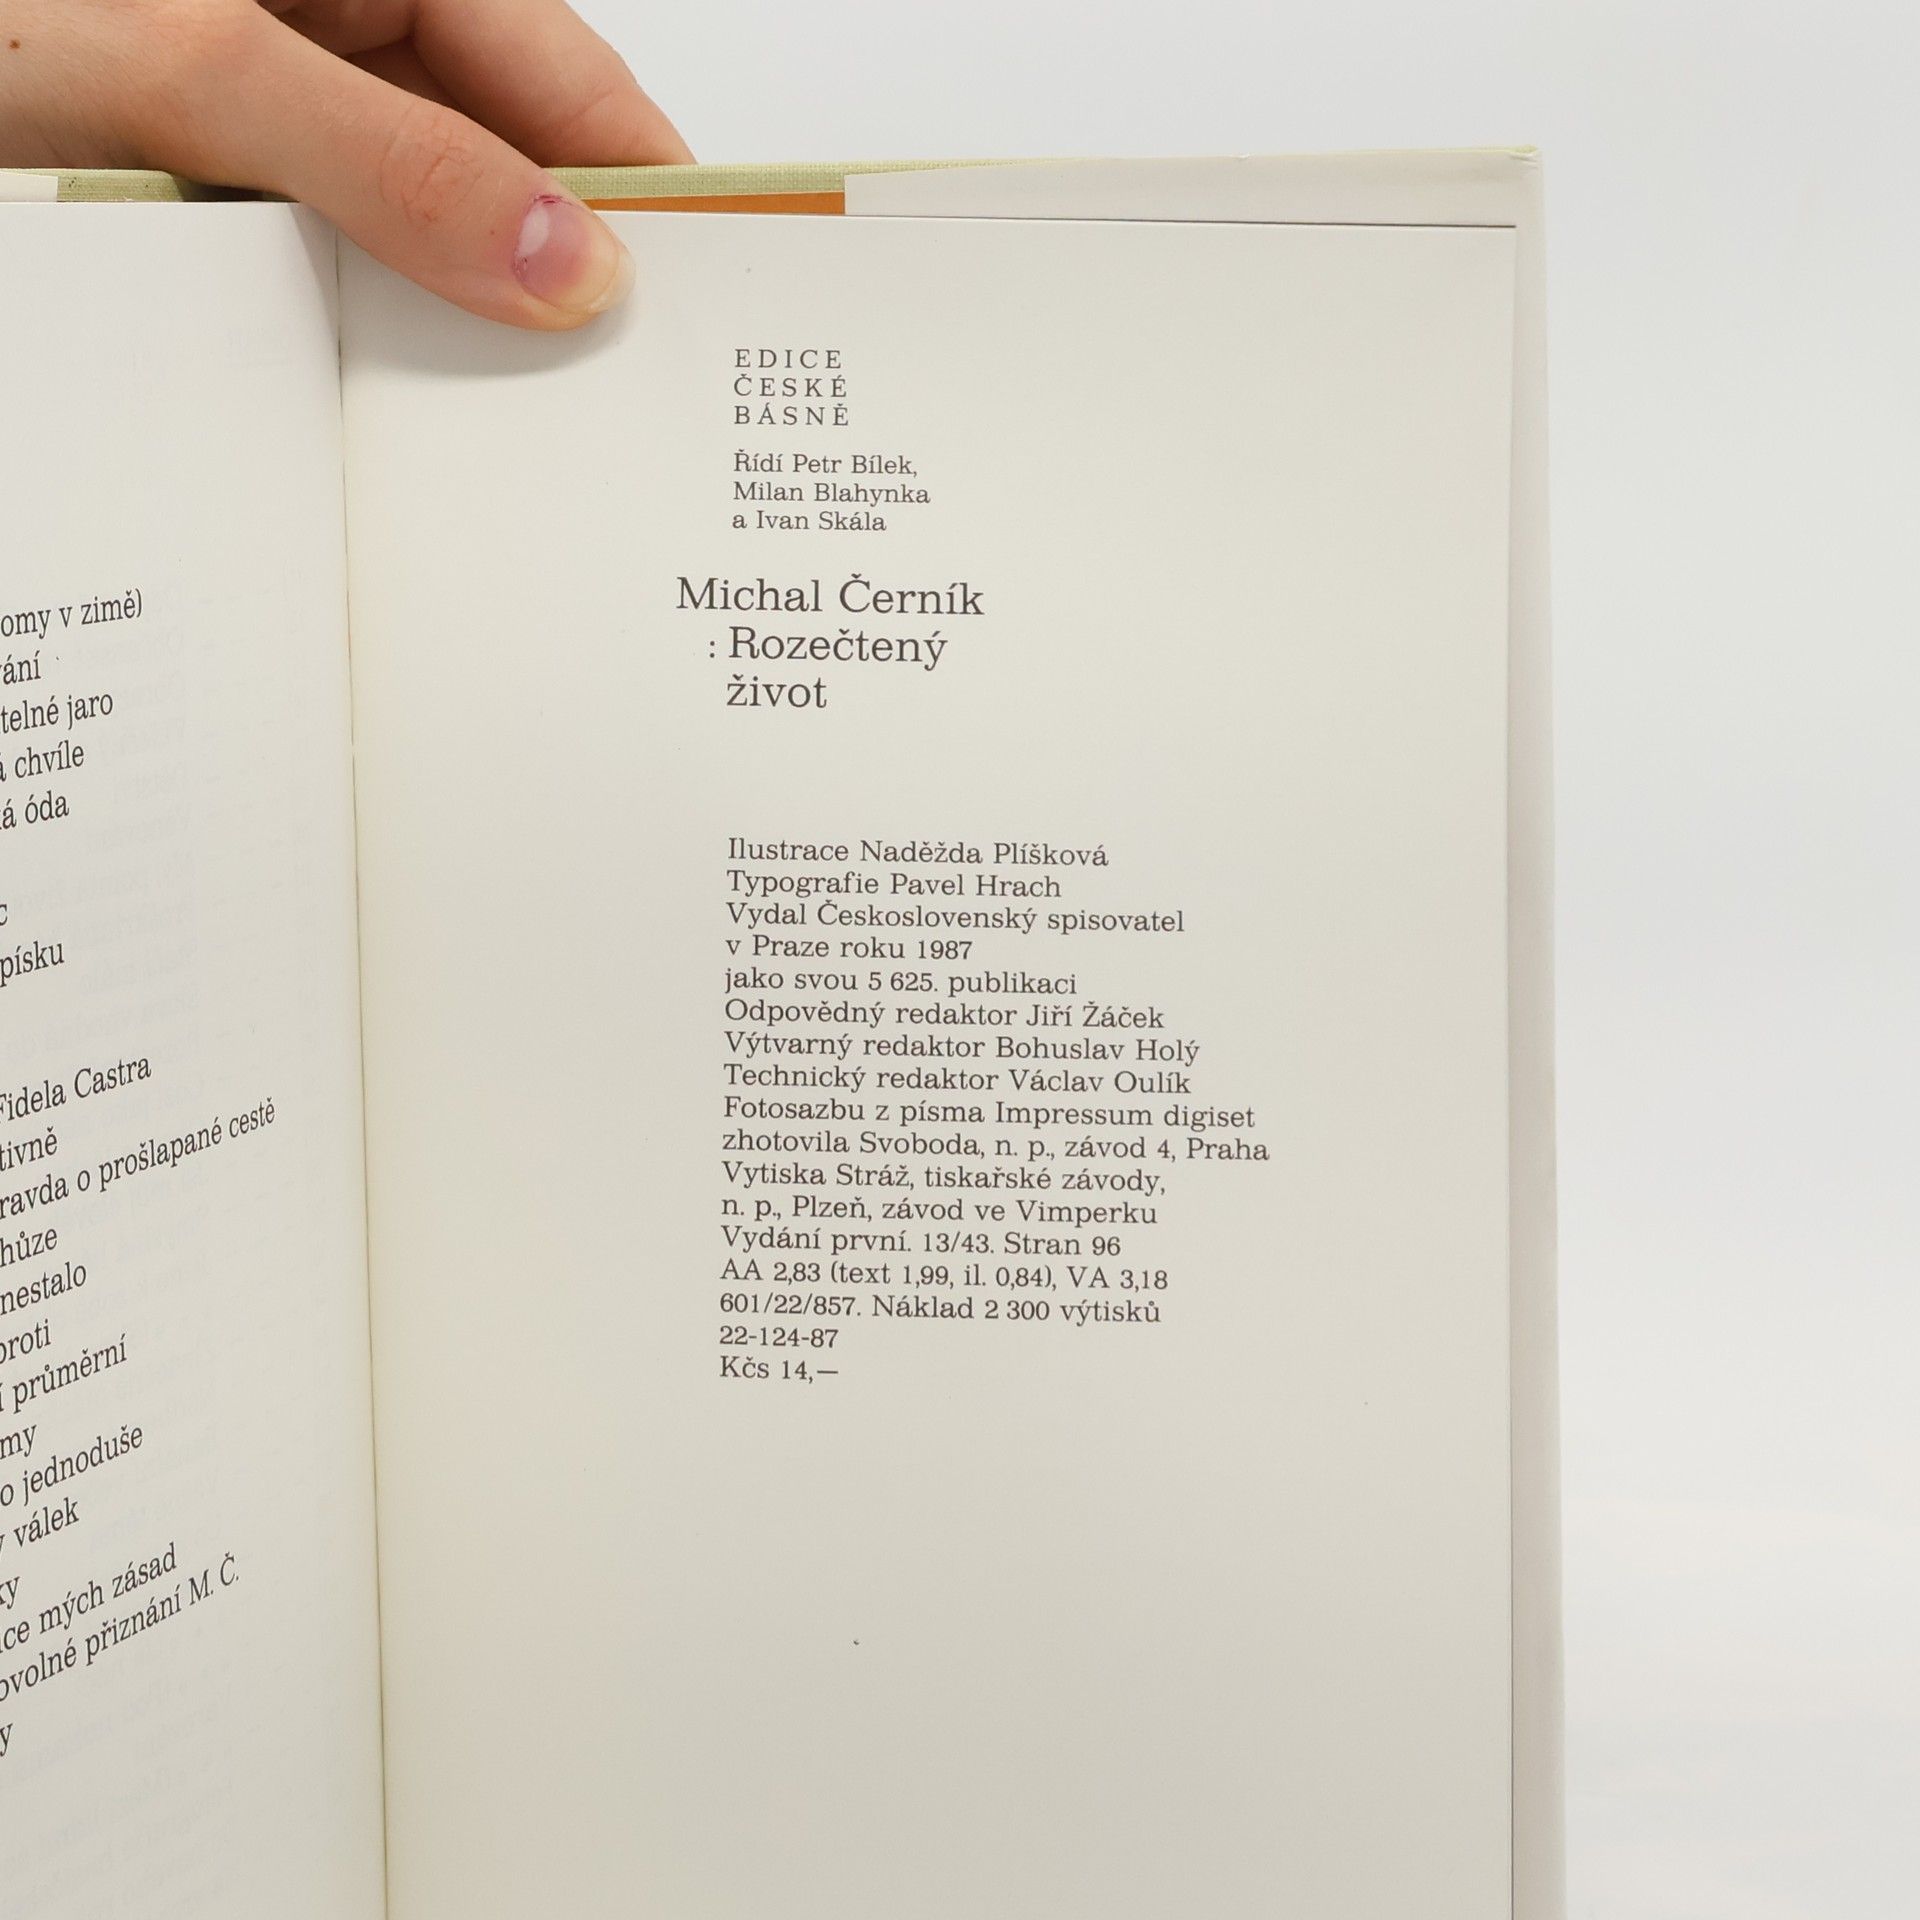 omy v zimě)
ání
telné jaro
chvíle
á óda
písku
Fidela Castra
tivně
ravda o prošlapané cestě
hůze
nestalo
proti
í průměrní
my
o jednoduše
válek
ky
ce mých zásad
ovolné přiznání M. Č.
y
EDICE
ČESKÉ
BÁSNĚ
Řídí Petr Bílek,
Milan Blahynka
a Ivan Skála
Michal Černík
: Rozečtený
život
Ilustrace Naděžda Plíšková
Typografie Pavel Hrach
Vydal Československý spisovatel
v Praze roku 1987
jako svou 5 625. publikaci
Odpovědný redaktor Jiří Žáček
Výtvarný redaktor Bohuslav Holý
Technický redaktor Václav Oulík
Fotosazbu z písma Impressum digiset
zhotovila Svoboda, n. p., závod 4, Praha
Vytiska Stráž, tiskařské závody,
n. p., Plzeň, závod ve Vimperku
Vydání první. 13/43. Stran 96
AA 2,83 (text 1,99, il. 0,84), VA 3,18
601/22/857. Náklad 2 300 výtisků
22-124-87
Kčs 14,—